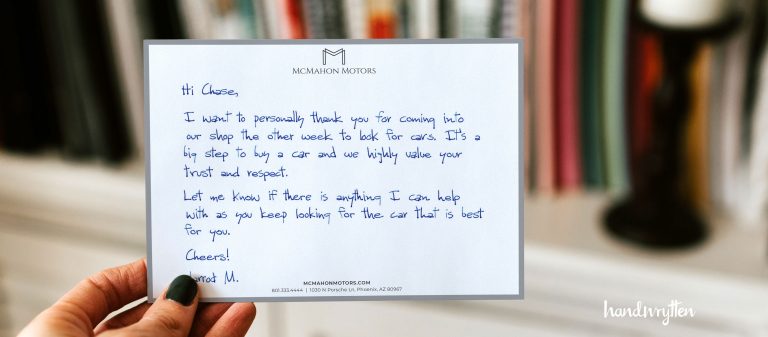 McMahon Motors
Hi Chase,
I want to personally thank you for coming into
our shop the other week to look for cars. It's a
big step to buy a car and we highly value your
trust and respect.
Let me know if there is anything I can help
with as you keep looking for the car that is best
for you.
Cheers!
Jarrod M.
MCMAHONMOTORS.COM
801.333.4444 | 1030 N Porsche Ln, Phoenix, AZ 80967
handwrytten